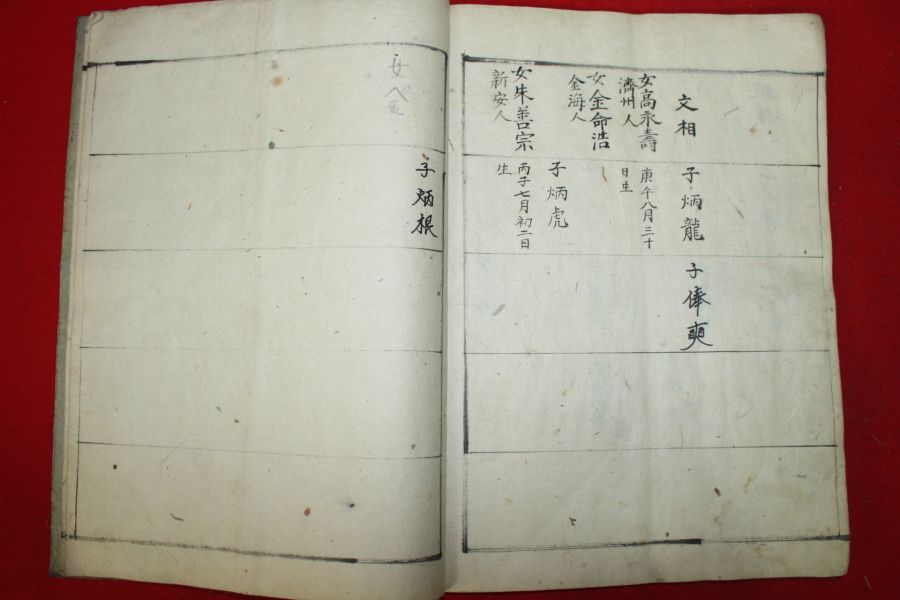 文相
女高永壽
濟州人
女金命浩
金海人
女朱善宗
新安人
子炳龍
庚午八月三十
日生
子炳虎
丙子七月初二日
生
子俸奭
女金
子炳根